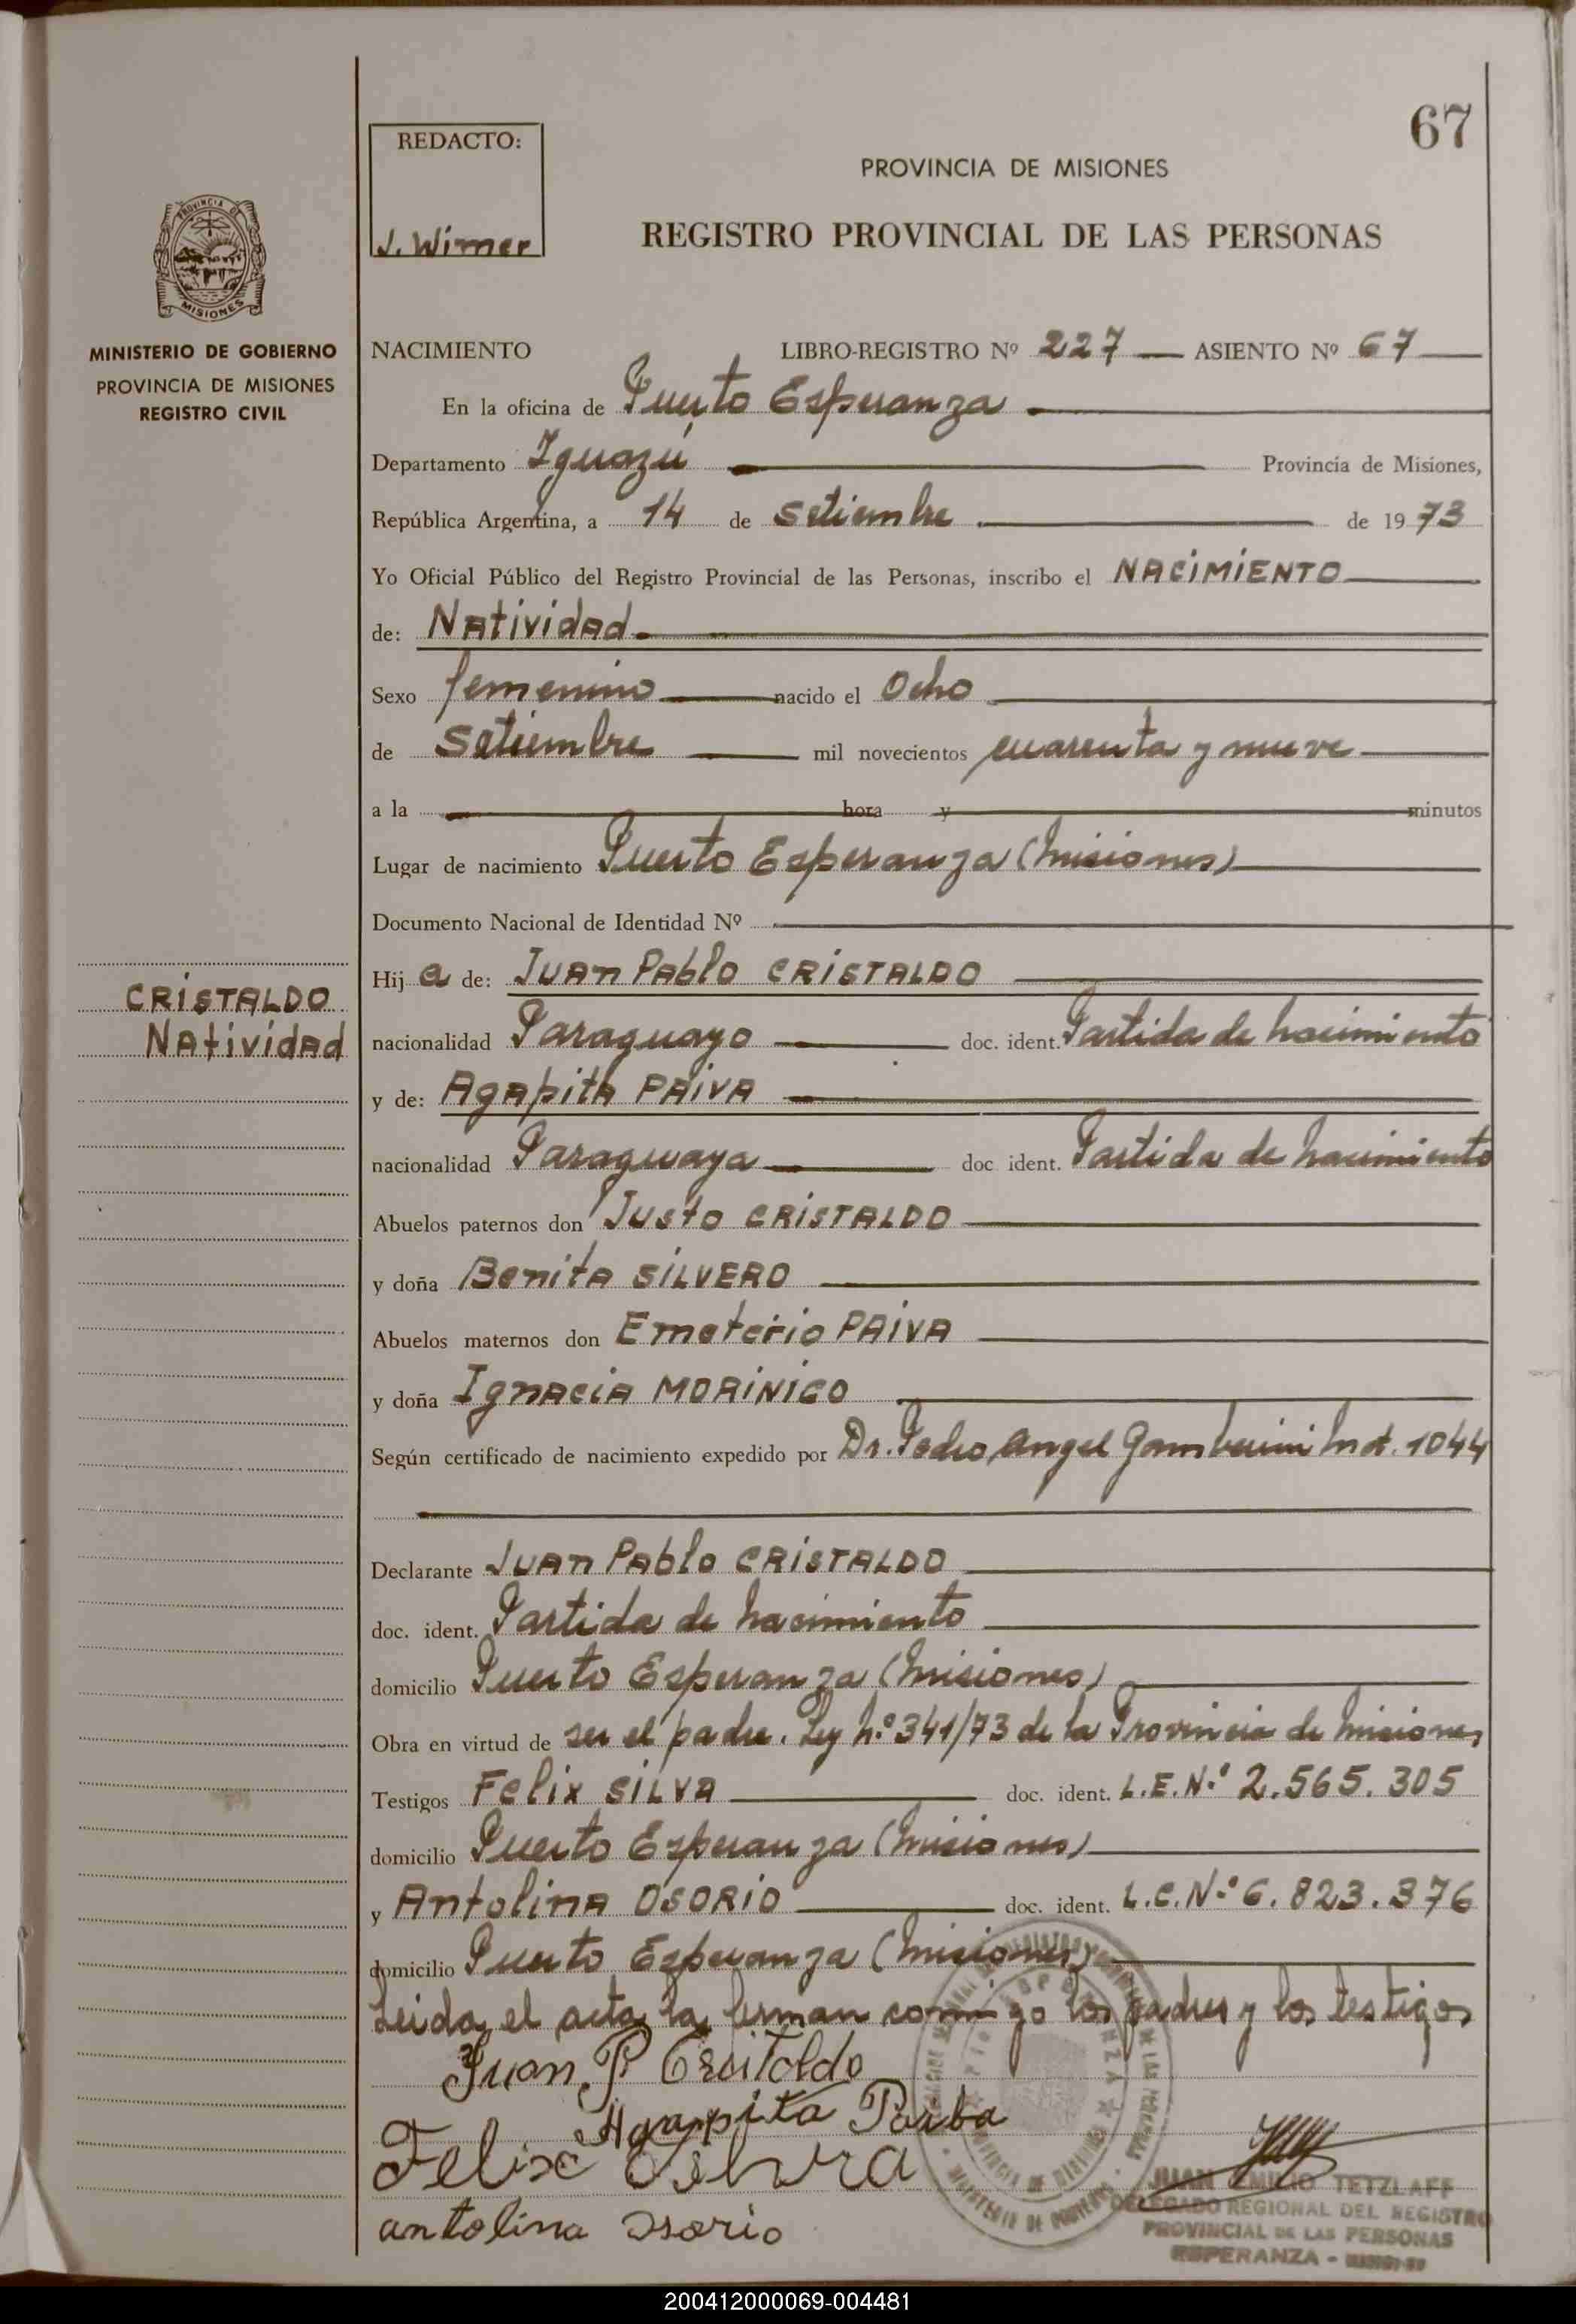 67
REDACTO:
J. Wimer
PROVINCIA DE MISIONES
REGISTRO PROVINCIAL DE LAS PERSONAS
PROVINCIA DE
MISIONES
MINISTERIO DE GOBIERNO
PROVINCIA DE MISIONES
REGISTRO CIVIL
NACIMIENTO LIBRO-REGISTRO Nº 227 ASIENTO Nº 67
En la oficina de Puerto Esperanza
Departamento Iguazú Provincia de Misiones,
República Argentina, a 14 de setiembre de 1973
Yo Oficial Público del Registro Provincial de las Personas, inscribo el NACIMIENTO
de: Natividad
Sexo femenino nacido el Ocho
de Setiembre mil novecientos cuarenta y nueve
a la hora y minutos
Lugar de nacimiento Puerto Esperanza (Misiones)
Documento Nacional de Identidad Nº
CRISTALDO
Natividad
Hij a de: Juan Pablo CRISTALDO
nacionalidad Paraguayo doc. ident. Partida de nacimiento
y de: Agapita PAIVA
nacionalidad Paraguaya doc. ident. Partida de nacimiento
Abuelos paternos don Justo CRISTALDO
y doña Benita SILVERO
Abuelos maternos don Emeterio PAIVA
y doña Ignacia MORINIGO
Según certificado de nacimiento expedido por Dr. Pedro Angel Gamberini Mat. 1044
Declarante Juan Pablo CRISTALDO
doc. ident. Partida de nacimiento
domicilio Puerto Esperanza (Misiones)
Obra en virtud de ser el padre. Ley N.º 341/73 de la Provincia de Misiones
Testigos Felix SILVA doc. ident. L.E.N.º 2.565.305
domicilio Puerto Esperanza (Misiones)
y Antolina OSORIO doc. ident. L.C.N.º 6.823.376
domicilio Puerto Esperanza (Misiones)
Leida el acta la firman conmigo los padres y los testigos
Juan P Cristaldo
Agappita
Felix Silvra
antolina osorio
JUAN EMILIO TETZLAFF
DELEGADO REGIONAL DEL REGISTRO
PROVINCIAL DE LAS PERSONAS
ESPERANZA -
200412000069-004481